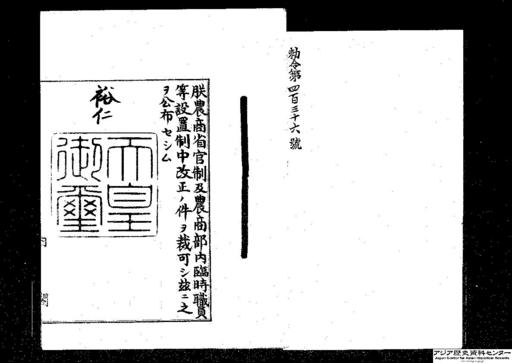 勅令第四百三十六號
朕農商省官制及農商部内臨時職員
等設置制中改正ノ件ヲ裁可シ茲ニ之
ヲ公布セシム
裕仁
天皇
御璽
内閣
アジア歴史資料センター
Japan Center for Asian Historical Records